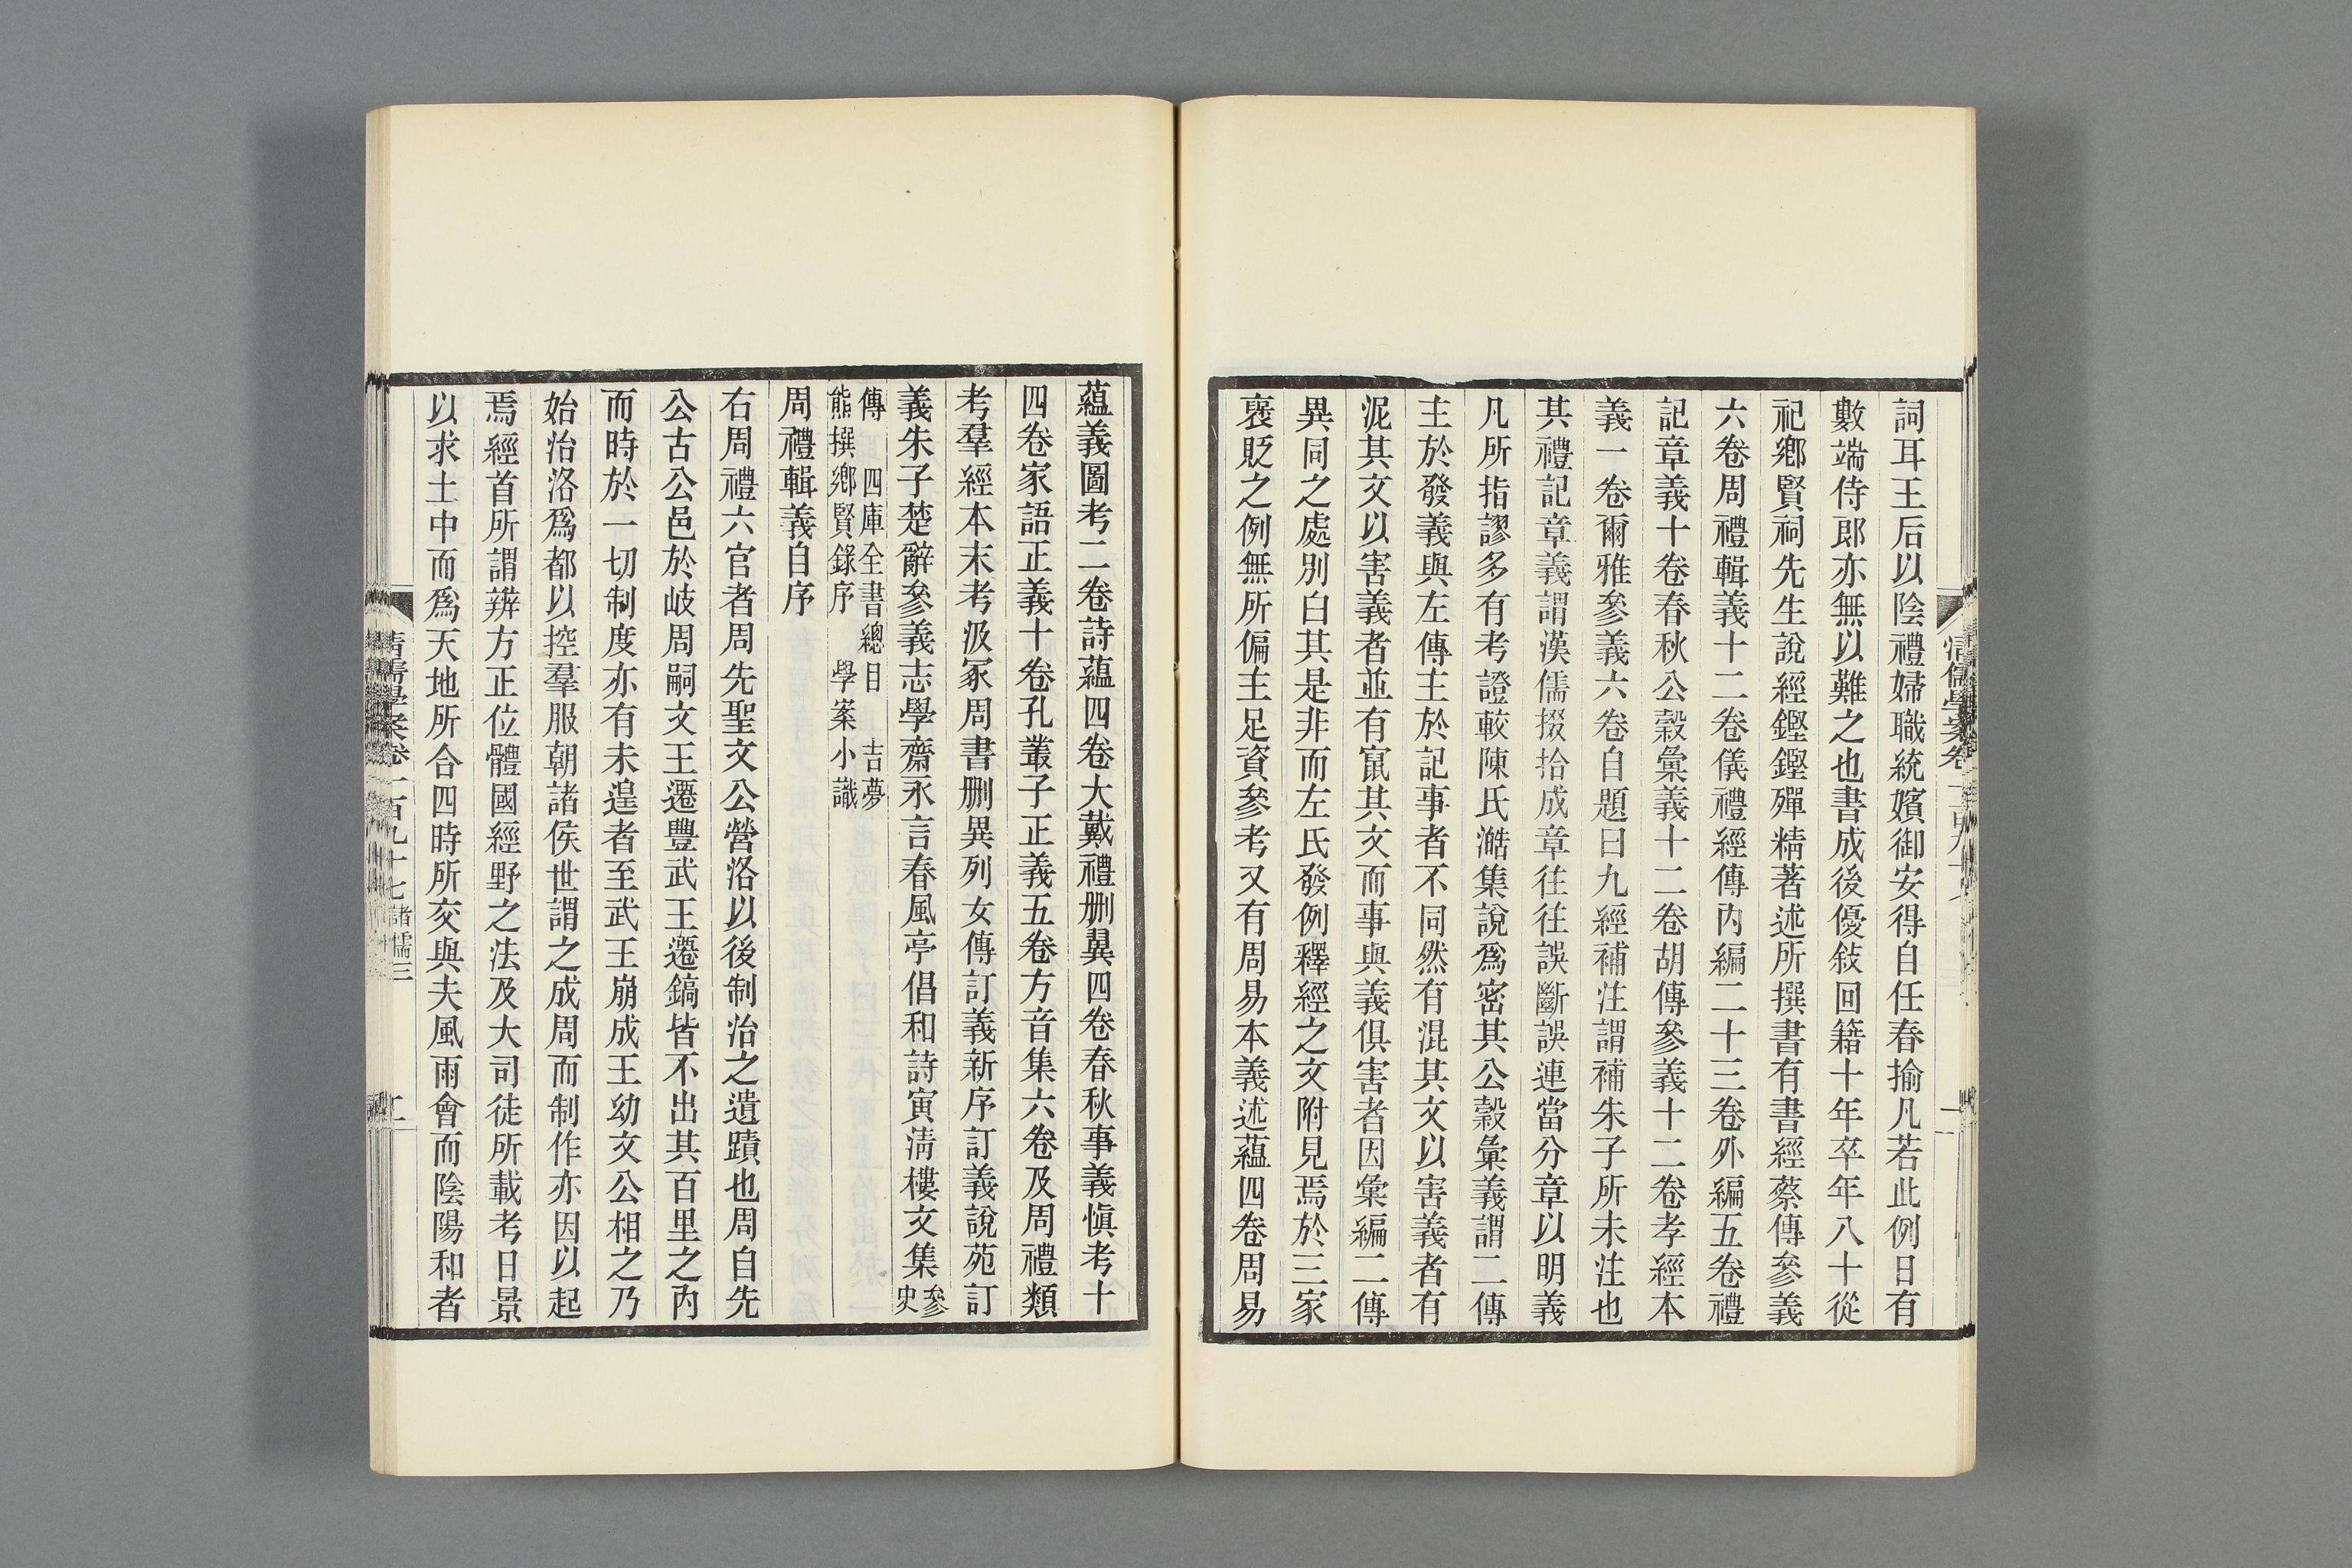 詞耳王后以陰禮婦職統嬪御安得自任春揄凡若此例日有
數端侍郎亦無以難之也書成後優敍回籍十年卒年八十從
祀鄉賢祠先生說經鏗鏗殫精著述所撰書有書經蔡傳參義
六卷周禮輯義十二卷儀禮經傳內編二十三卷外編五卷禮
記章義十卷春秋公穀彙義十二卷胡傳參義十二卷孝經本
義一卷爾雅參義六卷自題曰九經補注謂補朱子所未注也
其禮記章義謂漢儒掇拾成章往往誤斷誤連當分章以明義
凡所指謬多有考證較陳氏澔集說爲密其公穀彙義謂二傳
主於發義與左傳主於記事者不同然有混其文以害義者有
泥其文以害義者並有竄其文而事與義俱害者因彙編二傳
異同之處別白其是非而左氏發例釋經之文附見焉於三家
襃貶之例無所偏主足資參考又有周易本義述蘊四卷周易
蘊義圖考二卷詩蘊四卷大戴禮刪翼四卷春秋事義愼考十
四卷家語正義十卷孔叢子正義五卷方音集六卷及周禮類
考羣經本末考汲冢周書刪異列女傳訂義新序訂義說苑訂
義朱子楚辭參義志學齋永言春風亭倡和詩寅淸樓文集參史
傳 四庫全書總目 吉夢
熊撰鄉賢錄序 學案小識
周禮輯義自序
右周禮六官者周先聖文公營洛以後制治之遺蹟也周自先
公古公邑於岐周嗣文王遷豐武王遷鎬皆不出其百里之內
而時於一切制度亦有未遑者至武王崩成王幼文公相之乃
始治洛爲都以控羣服朝諸侯世謂之成周而制作亦因以起
焉經首所謂辨方正位體國經野之法及大司徒所載考日景
以求土中而爲天地所合四時所交與夫風雨會而陰陽和者
清儒學案卷一百九十七 諸儒三 二